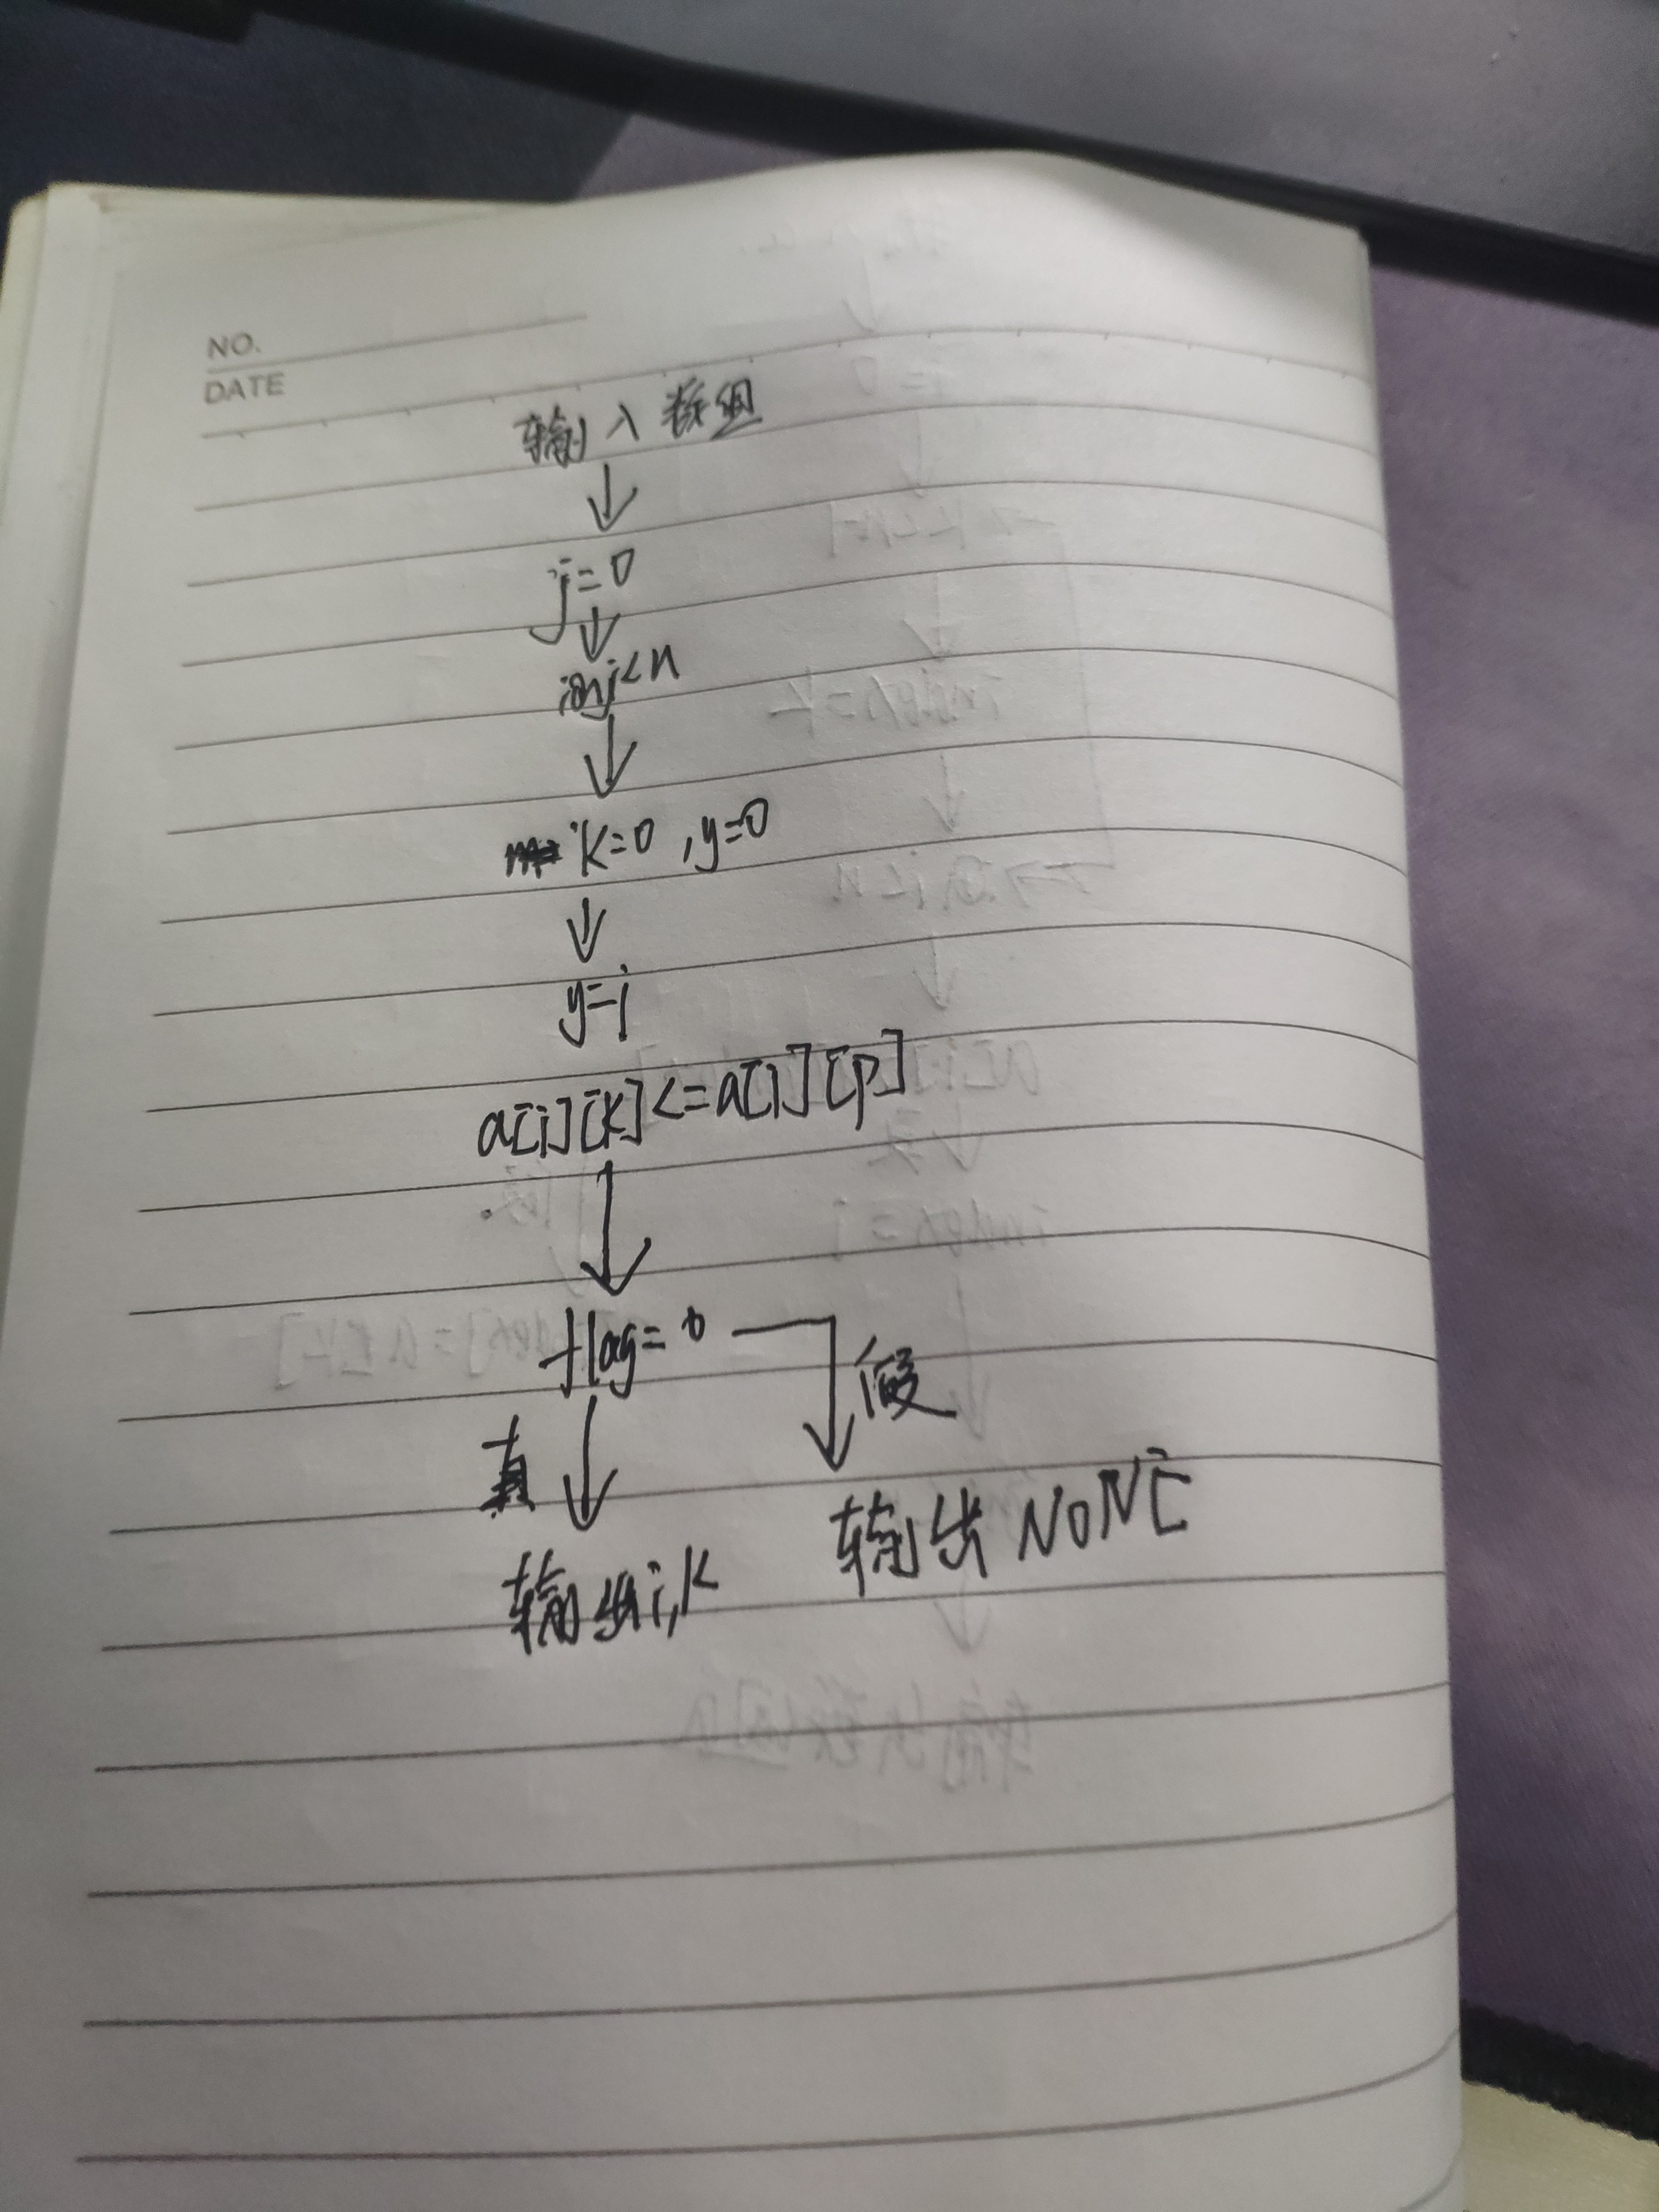 NO.
DATE
输入数组
↓
j=0
↓
j<n
↓
k=0 ,y=0
↓
y=j
a[i][k]<=a[i][p]
↓
flag=0
真 ↓ 假
输出 NONE
输出i,k